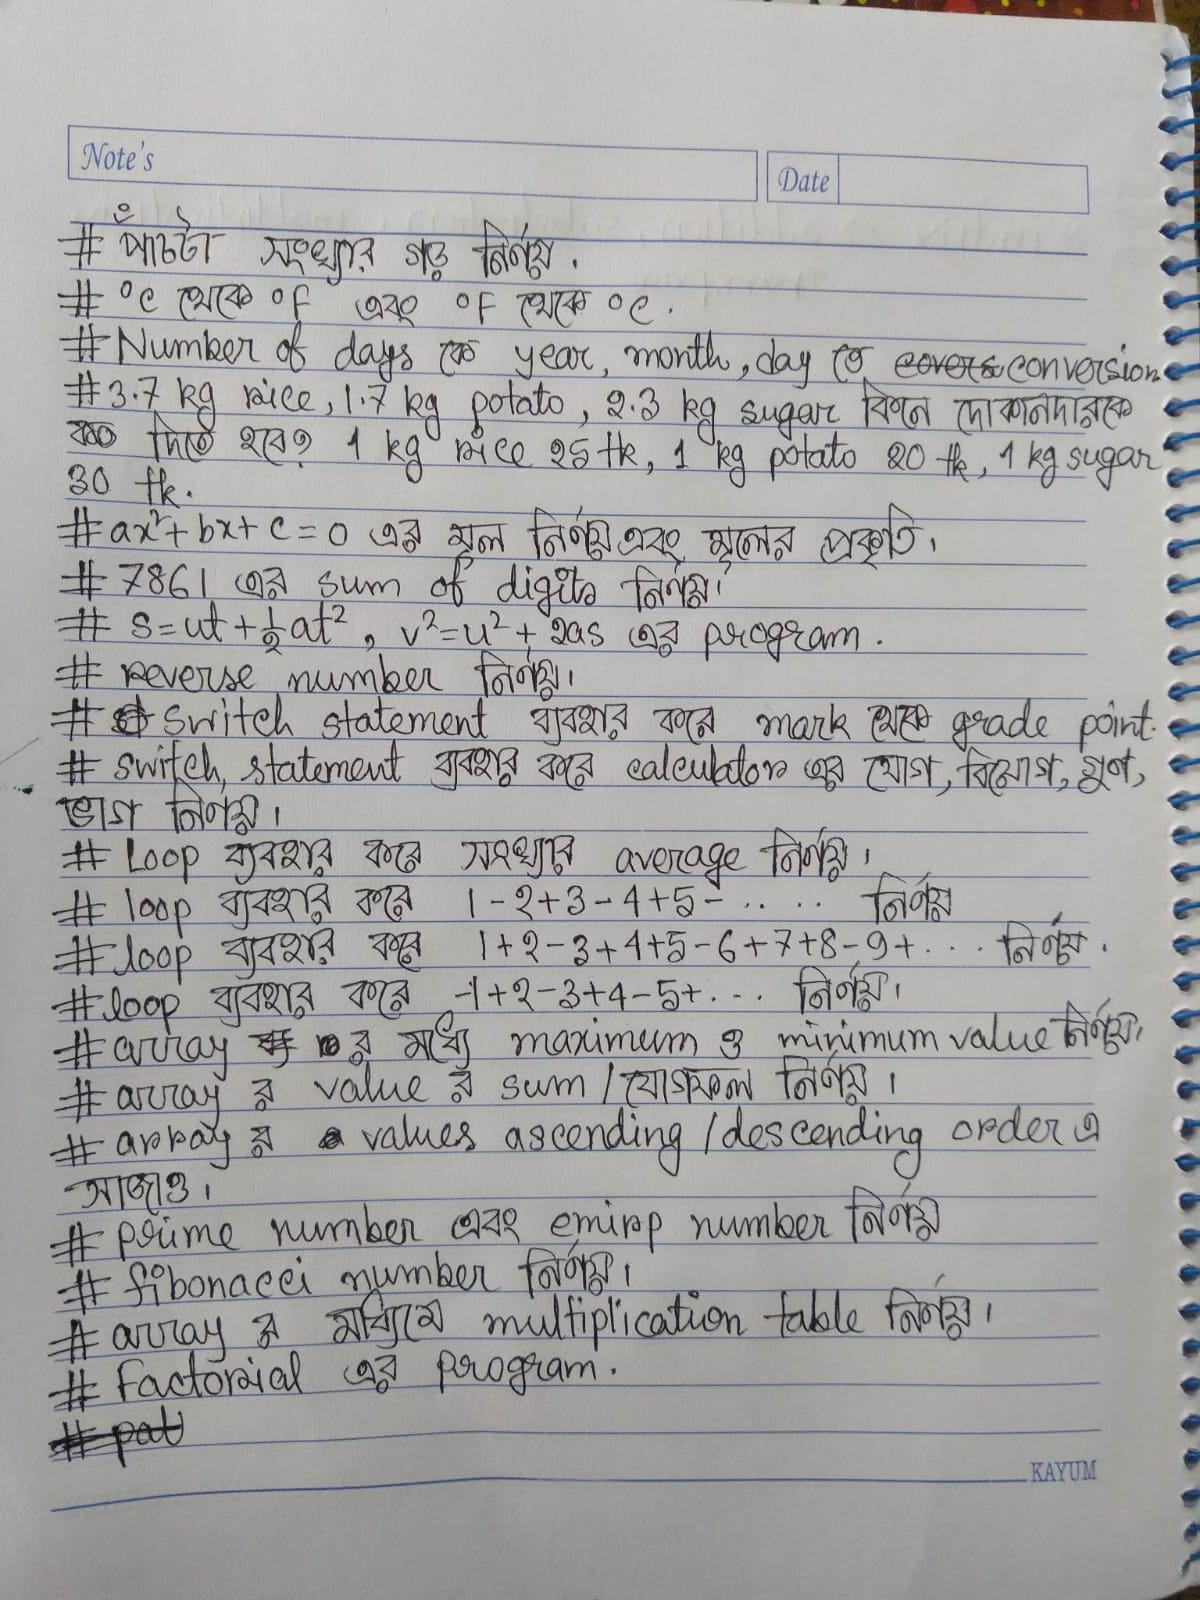 Note's
Date
# পাঁচটা সংখ্যার গড় নির্ণয়.
# °C থেকে °F এবং °F থেকে °C.
# Number of days কে year, month, day তে conversion
# 3.7 kg rice, 1.7 kg potato, 2.3 kg sugar কিনে দোকানদারকে
কত দিতে হবে? 1 kg rice 25 tk, 1 kg potato 20 tk, 1 kg sugar
30 tk.
# ax²+bx+c=0 এর মূল নির্ণয় এবং মূলের প্রকৃতি।
# 7861 এর sum of digits নির্ণয়।
# s=ut+½at², v²=u²+2as এর program.
# reverse number নির্ণয়।
# switch statement ব্যবহার করে mark থেকে grade point.
# switch statement ব্যবহার করে calculator এর যোগ, বিয়োগ, গুণ,
ভাগ নির্ণয়।
# Loop ব্যবহার করে সংখ্যার average নির্ণয়।
# loop ব্যবহার করে 1-2+3-4+5-..... নির্ণয়
# loop ব্যবহার করে 1+2-3+4+5-6+7+8-9+.... নির্ণয়.
# loop ব্যবহার করে -1+2-3+4-5+... নির্ণয়।
# array র মধ্যে maximum ও minimum value নির্ণয়।
# array র value র sum/যোগফল নির্ণয়।
# array র values ascending/descending order এ
সাজাও।
# prime number এবং emirp number নির্ণয়
# fibonacci number নির্ণয়।
# array র মাধ্যমে multiplication table নির্ণয়।
# Factorial এর program.
# pat
KAYUM